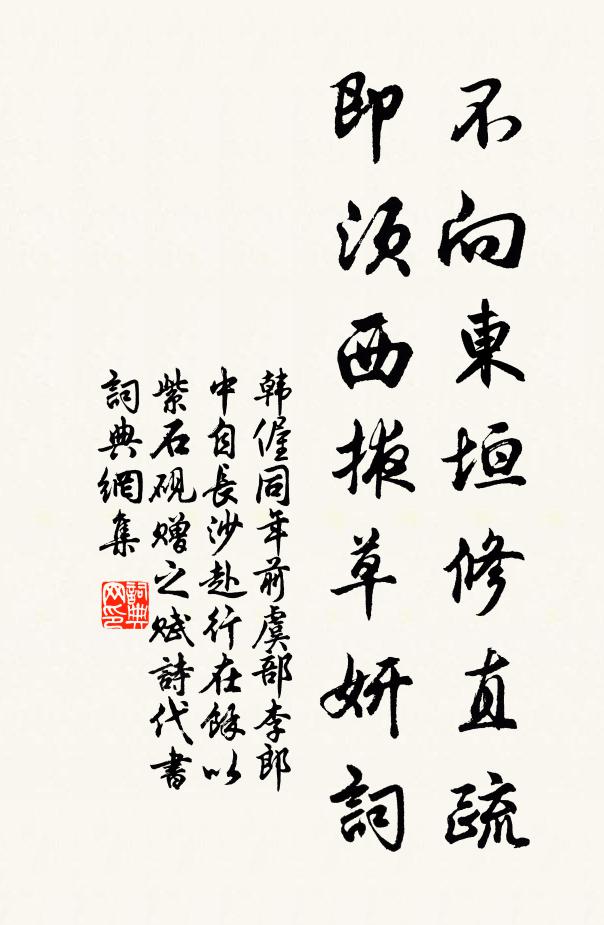 不向東垣修直疏
即須西掖草妍詞
韩偓同年前虞部李郎
中自長沙赴行在餘以
紫石硯赠之赋詩代書
詞典網集
詞典网印